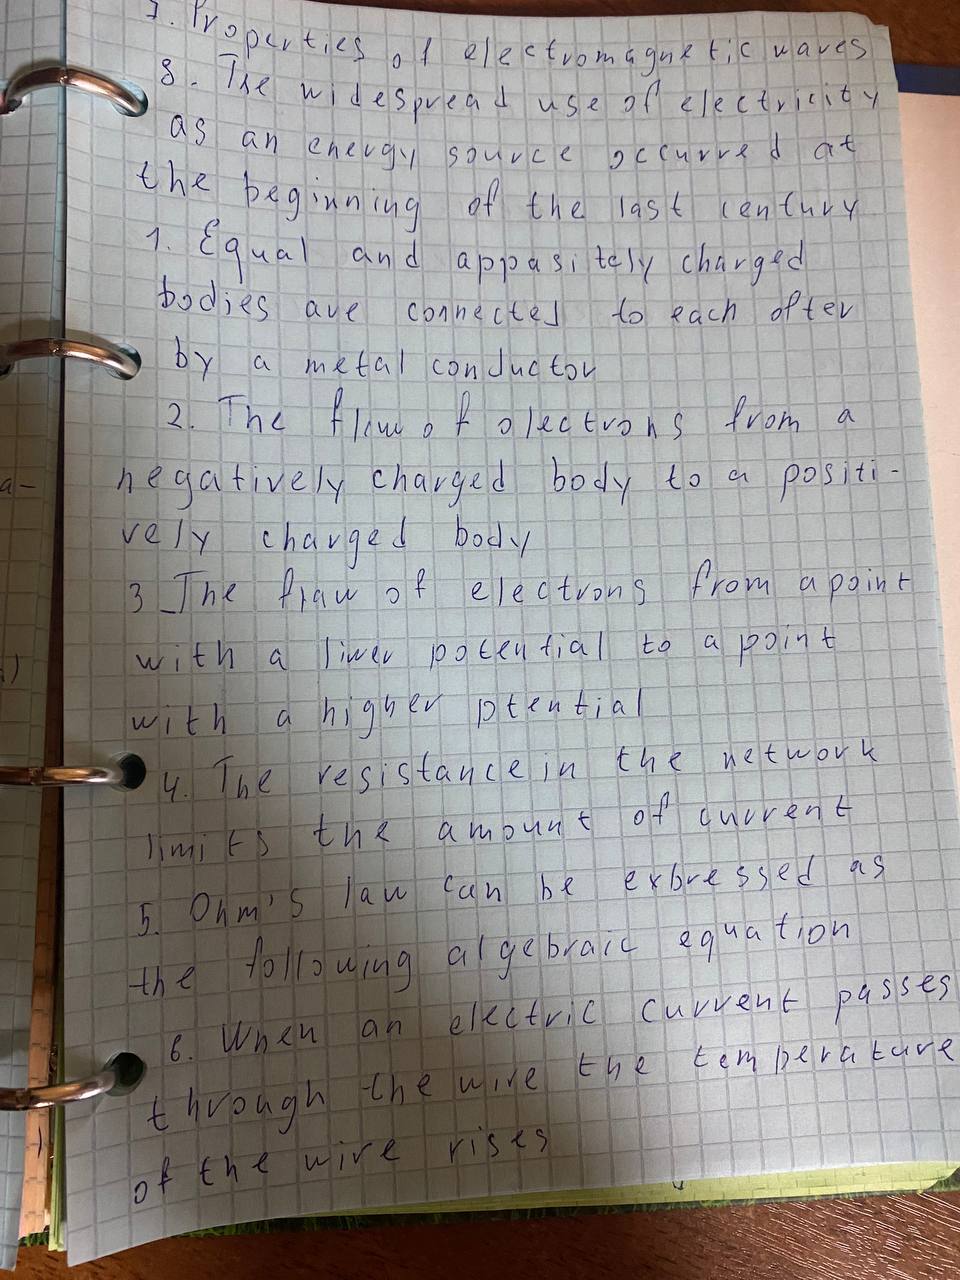 7. Properties of electromagnetic waves
8. The widespread use of electricity
as an energy source occurred at
the beginning of the last century
1. Equal and appasitely charged
bodies are connected to each ofter
by a metal conductor
2. The flow of olectrons from a
negatively charged body to a positi-
vely charged body
3 The flaw of electrons from a point
with a liwer potential to a point
with a higher ptential
4. The resistance in the network
limits the amount of current
5. Ohm's law can be exbressed as
the following algebraic equation
6. When an electric current passes
through the wire the temperature
of the wire rises
a-
)
)